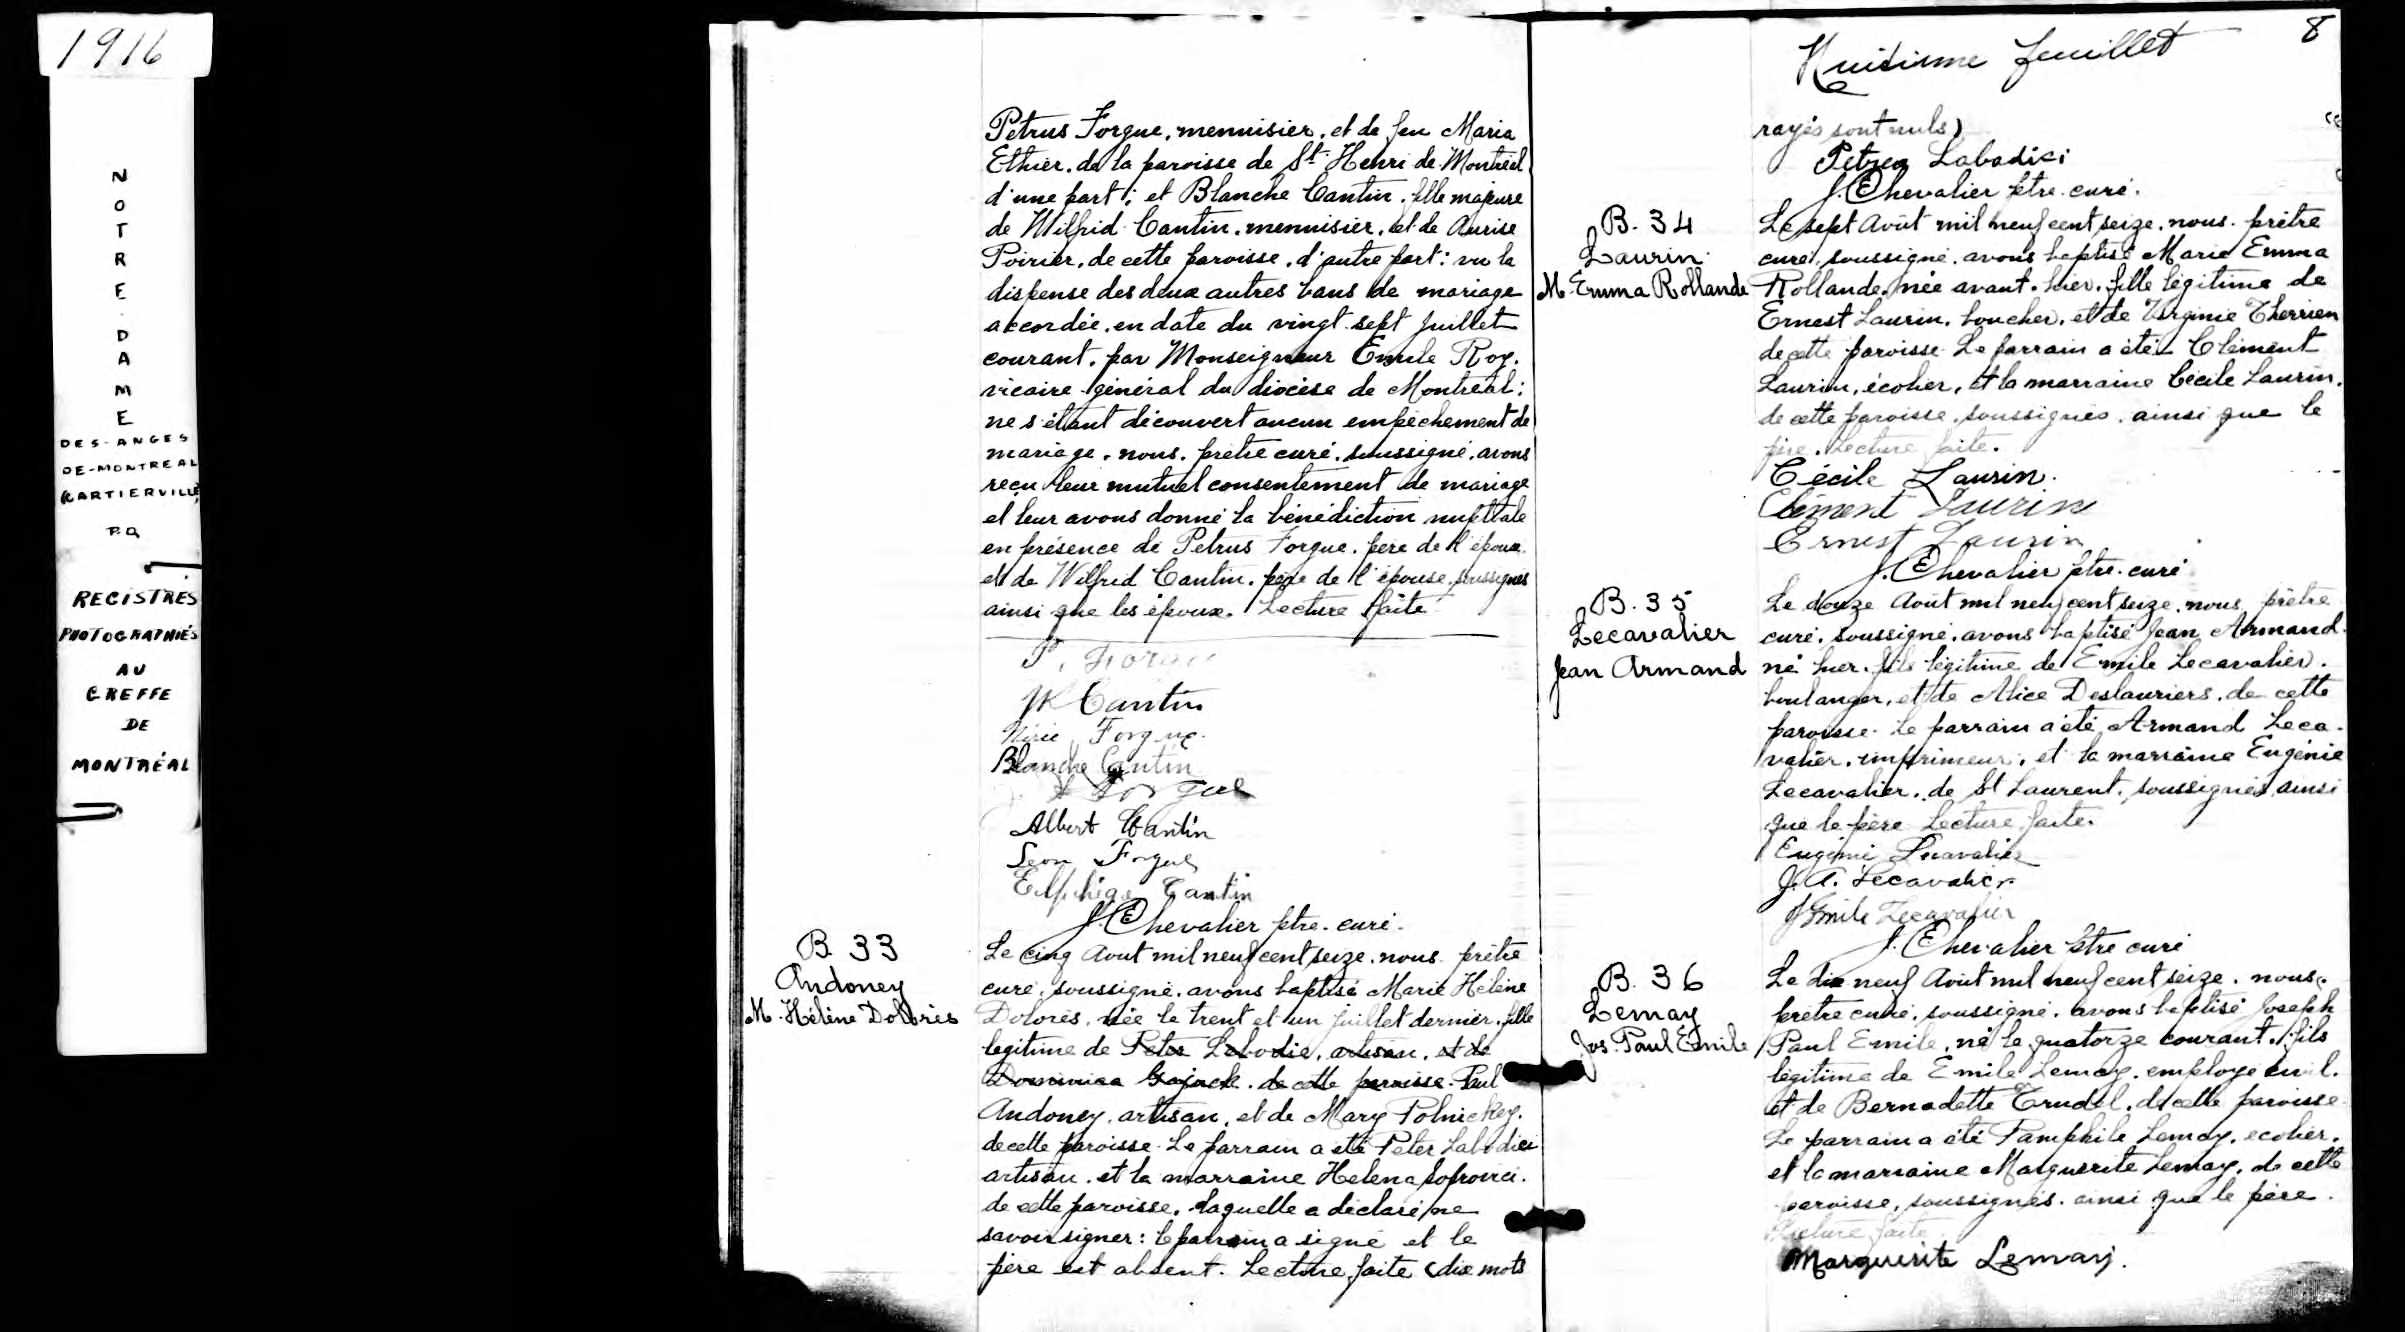 1916
NOTRE-DAME
DES-ANGES
DE-MONTREAL
(CARTIERVILLE)
P.Q.
REGISTRES
PHOTOGRAPHIÉS
AU
GREFFE
DE
MONTRÉAL
Petrus Forgue, menuisier, et de feu Maria
Ethier, de la paroisse de St Henri de Montréal
d'une part; et Blanche Cantin, fille majeure
de Wilfrid Cantin, menuisier, et de Aurise
Poirier, de cette paroisse, d'autre part: vu la
dispense des deux autres bans de mariage
accordée, en date du vingt-sept Juillet
courant, par Monseigneur Emile Roy,
vicaire-général du diocèse de Montréal:
ne s'étant découvert aucun empêchement de
mariage, nous, prêtre curé, soussigné, avons
reçu leur mutuel consentement de mariage
et leur avons donné la bénédiction nuptiale
en présence de Petrus Forgue, père de l'époux
et de Wilfrid Cantin, père de l'épouse, soussignés
ainsi que les époux. Lecture faite
P. Forgue
Cantin
Forgue
Blanche Cantin
Forgue
Albert Cantin
Leon Forgue
Elphège Cantin
J. E Chevalier ptre. curé.
B 33
Andoney
M. Hélène Dolorès
Le cinq Aout mil neuf cent seize, nous prêtre
curé, soussigné, avons baptisé Marie Hélène
Dolorès, née le trent et un juillet dernier, fille
legitime de Peter Labodie, artisan, et de
Dominica Gajack, de cette paroisse. Paul
Andoney, artisan, et de Mary Polnickey,
de cette paroisse. Le parrain a été Peter Labodici
artisan, et la marraine Helena Sofrovici,
de cette paroisse, laquelle a déclaré ne
savoir signer: le parrain a signé et le
père est absent. Lecture faite (dix mots
Huitième feuillet
8
rayés sont nuls)
Labadici
J. E Chevalier ptre. curé.
B. 34
Laurin
M. Emma Rollande
Le sept Août mil neuf cent seize, nous prêtre
curé, soussigné, avons baptisé Marie Emma
Rollande, née avant-hier, fille légitime de
Ernest Laurin, boucher, et de Virginie Therrien
de cette paroisse. Le parrain a été Clément
Laurin, écolier, et la marraine Cécile Laurin,
de cette paroisse, soussignés, ainsi que le
père. Lecture faite.
Cécile Laurin.
Clément Laurin
Ernest Laurin
J. E Chevalier ptre. curé
B. 35
Lecavalier
Jean Armand
Le douze Août mil neuf cent seize, nous, prêtre
curé, soussigné, avons baptisé Jean Armand,
né hier, fils légitime de Emile Lecavalier,
boulanger, et de Alice Deslauriers, de cette
paroisse. Le parrain a été Armand Leca-
valier, imprimeur, et la marraine Eugénie
Lecavalier, de St Laurent, soussignés, ainsi
que le père. Lecture faite.
Eugénie Lecavalier
J. A. Lecavalier
J Emile Lecavalier
J. E Chevalier ptre curé
B. 36
Lemay
Jos. Paul Emile
Le dix neuf Août mil neuf cent seize, nous
prêtre curé, soussigné, avons baptisé Joseph
Paul Emile, né le quatorze courant, fils
légitime de Emile Lemay, employé civil,
et de Bernadette Trudel, de cette paroisse.
Le parrain a été Pamphile Lemay, écolier,
et la marraine Marguerite Lemay, de cette
paroisse, soussignés, ainsi que le père.
Lecture faite
Marguerite Lemay.